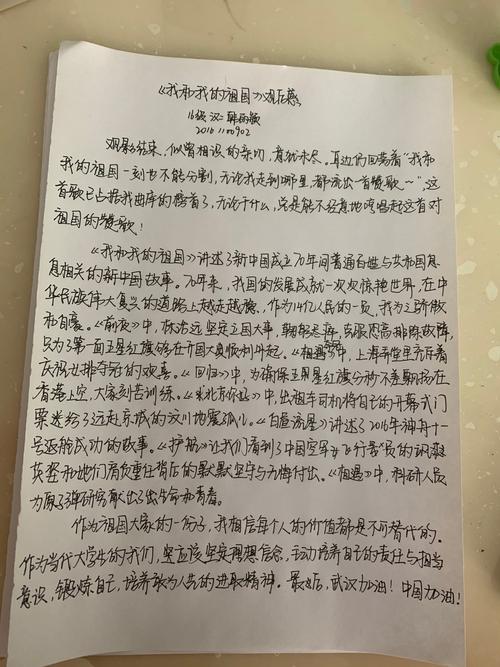 《我和我的祖国》观后感
16级 汉二 韩雨
2016110902
观影结束，似曾相识的亲切，意犹未尽。耳边仍回荡着“我和
我的祖国一刻也不能分割，无论我走到哪里，都流出一首赞歌～”，这
首歌已占据我曲库的榜首了，无论干什么，总是能不经意地哼唱起这首对
祖国的赞歌！
《我和我的祖国》讲述了新中国成立70年间普通百姓与共和国息
息相关的新中国故事。70年来，我国的发展成就一次次惊艳世界，在中
华民族伟大复兴的道路上越走越稳，作为14亿人民的一员，我为之骄傲
和自豪。《前夜》中，林治远坚定立国大事，克服恐高排除故障，
只为了第一面五星红旗能够在开国大典顺利升起。《相遇》中，上海弄堂里充斥着
庆祝女排夺冠的欢喜。《回归》中，为确保五星红旗分秒不差飘扬在
香港上空，大家刻苦训练。《北京你好》中，出租车司机将自己的开幕式门
票送给了远赴京城的汶川地震孤儿。《白昼流星》讲述了2016年神舟十一
号返航成功的故事。《护航》让我们看到了中国空军女飞行员的飒爽
英姿和她们肩负重任背后的默默坚守与无悔付出。《相遇》中，科研人员
为原子弹研究献出了生命和青春。
作为祖国大家的一份子，我相信每个人的价值都是不可替代的。
作为当代大学生的我们，更应该坚定理想信念，主动培养自己的责任与担当
意识，锻炼自己，培养敢为人先的进取精神。最后，武汉加油！中国加油！